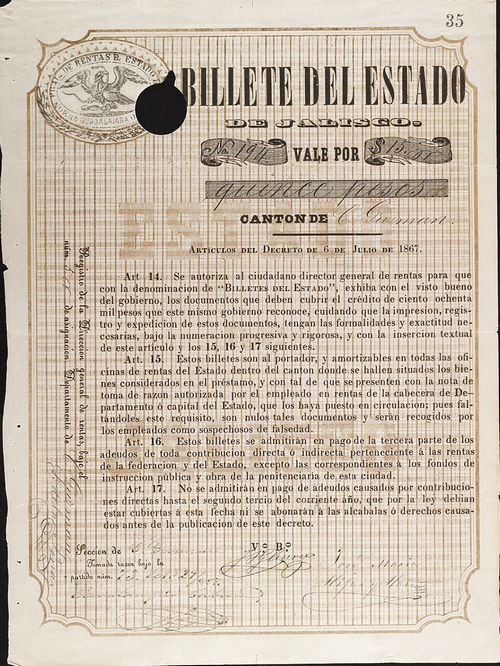 35
BILLETE DEL ESTADO
DE JALISCO.
No. 194 VALE POR $ 15.00
quince pesos
CANTON DE C. Guzman.
ARTICULOS DEL DECRETO DE 6 DE JULIO DE 1867.
Art. 14. Se autoriza al ciudadano director general de rentas para que
con la denominacion de "BILLETES DEL ESTADO", exhiba con el visto bueno
del gobierno, los documentos que deben cubrir el crédito de ciento ochenta
mil pesos que este mismo gobierno reconoce, cuidando que la impresion, regis-
tro y expedicion de estos documentos, tengan las formalidades y exactitud ne-
cesarias, bajo la numeracion progresiva y rigorosa, y con la insercion textual
de este artículo y los 15, 16 y 17 siguientes.
Art. 15. Estos billetes son al portador, y amortizables en todas las ofi-
cinas de rentas del Estado dentro del canton donde se hallen situados los bie-
nes considerados en el préstamo, y con tal de que se presenten con la nota de
toma de razon autorizada por el empleado en rentas de la cabecera de De-
partamento ó capital de Estado, que los haya puesto en circulacion; pues fal-
tándoles este requisito, son nulos tales documentos y serán recogidos por
los empleados como sospechosos de falsedad.
Art. 16. Estos billetes se admitirán en pago de la tercera parte de los
adeudos de toda contribucion directa ó indirecta perteneciente á las rentas
de la federacion y del Estado, excepto las correspondientes á los fondos de
instruccion pública y obra de la penitenciaria de esta ciudad.
Art. 17. No se admitirán en pago de adeudos causados por contribucio-
nes directas hasta el segundo tercio del corriente año, que por la ley debian
estar cubiertas á esta fecha ni se abonarán á las alcabalas ó derechos causa-
dos antes de la publicacion de este decreto.
Registro de la Direccion general de rentas, bajo el
núm. de asignacion Departamento de
Seccion de
Tomada razon bajo la
partida núm.
V.o B.o
José Maria